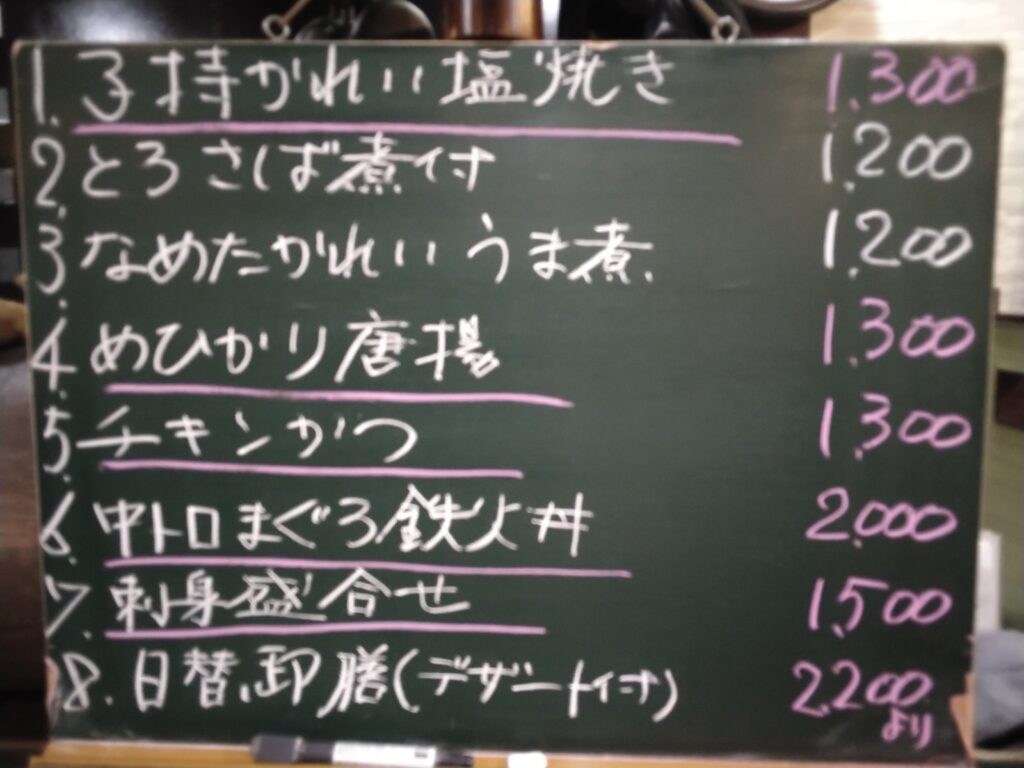 1. 子持かれい塩焼き 1.300
2. とろさば煮付 1.200
3. なめたがれい うま煮 1.200
4. めひかり唐揚 1.300
5. チキンかつ 1.300
6. 中トロまぐろ鉄火丼 2.000
7. 刺身盛合せ 1.500
8. 日替、御膳(デザート付) 2.200
より